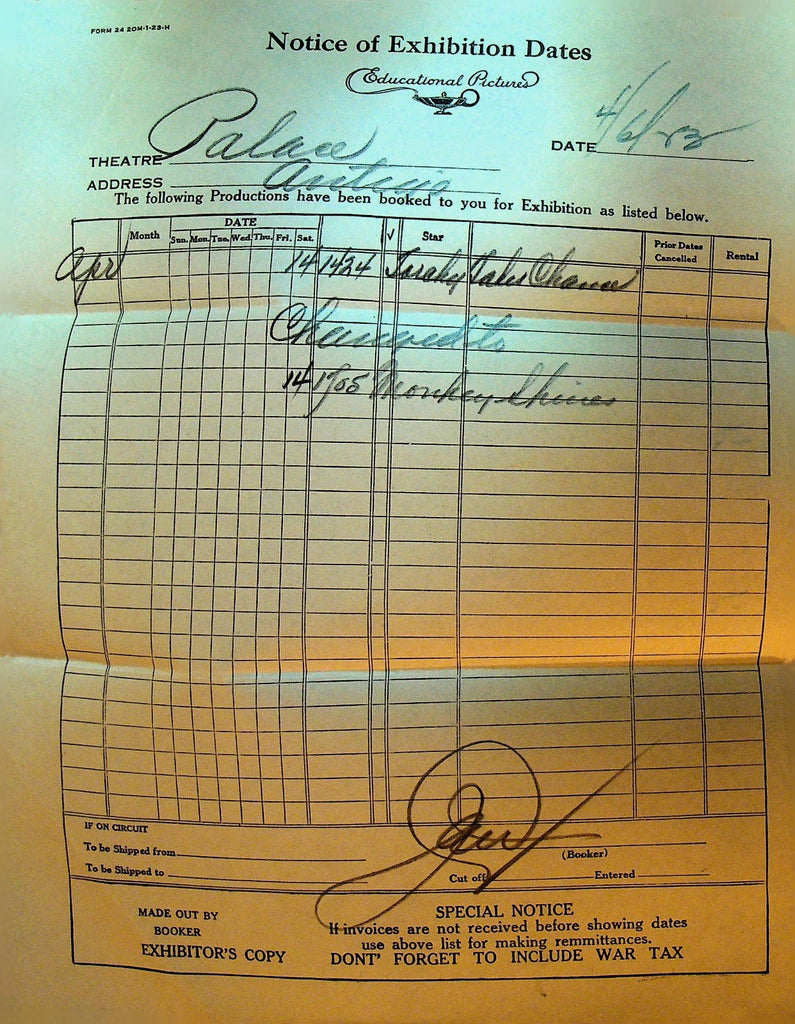 FORM 24 20M-1-23-H
Notice of Exhibition Dates
Educational Pictures
THEATRE Palace
DATE 4/6/23
ADDRESS Antinio
The following Productions have been booked to you for Exhibition as listed below.
Month DATE Sun. Mon. Tue. Wed. Thu. Fri. Sat. √ Star Prior Dates Cancelled Rental
Apr 14 1424 Torchy Takes Chance
Changed to
14 1705 Monkey Shines
IF ON CIRCUIT
To be Shipped from
(Booker)
To be Shipped to
Cut off
Entered
MADE OUT BY
BOOKER
EXHIBITOR'S COPY
SPECIAL NOTICE
If invoices are not received before showing dates
use above list for making remmittances.
DONT' FORGET TO INCLUDE WAR TAX